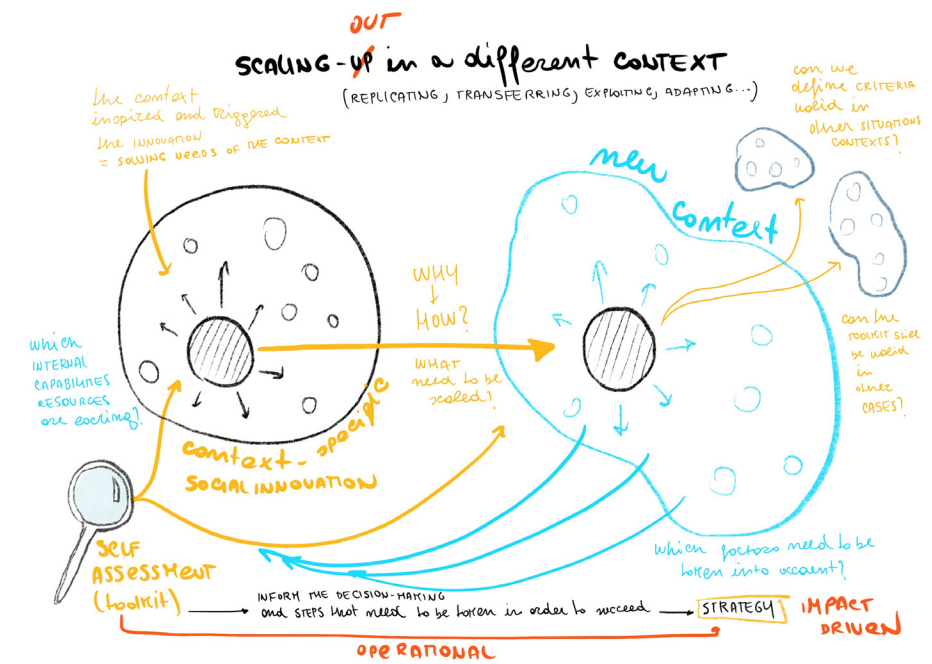 OUT
SCALING-UP in a different CONTEXT
(REPLICATING, TRANSFERRING, EXPLOITING, ADAPTING...)
the context
inspired and triggered
the INNOVATION
= SOLVING NEEDS OF THE CONTEXT
can we
define CRITERIA
valid in
other SITUATIONS
CONTEXTS?
new
context
WHY
HOW?
WHAT
need to be
scaled?
which
INTERNAL
CAPABILITIES
RESOURCES
are
can the
TOOLKIT
be valid
in
other
CASES?
context-specific
SOCIAL INNOVATION
SELF
ASSESSMENT
(toolkit)
which factors need to be
taken into account?
INFORM THE DECISION-MAKING
and STEPS that need to be taken in order to succeed
STRATEGY
IMPACT
DRIVEN
OPERATIONAL